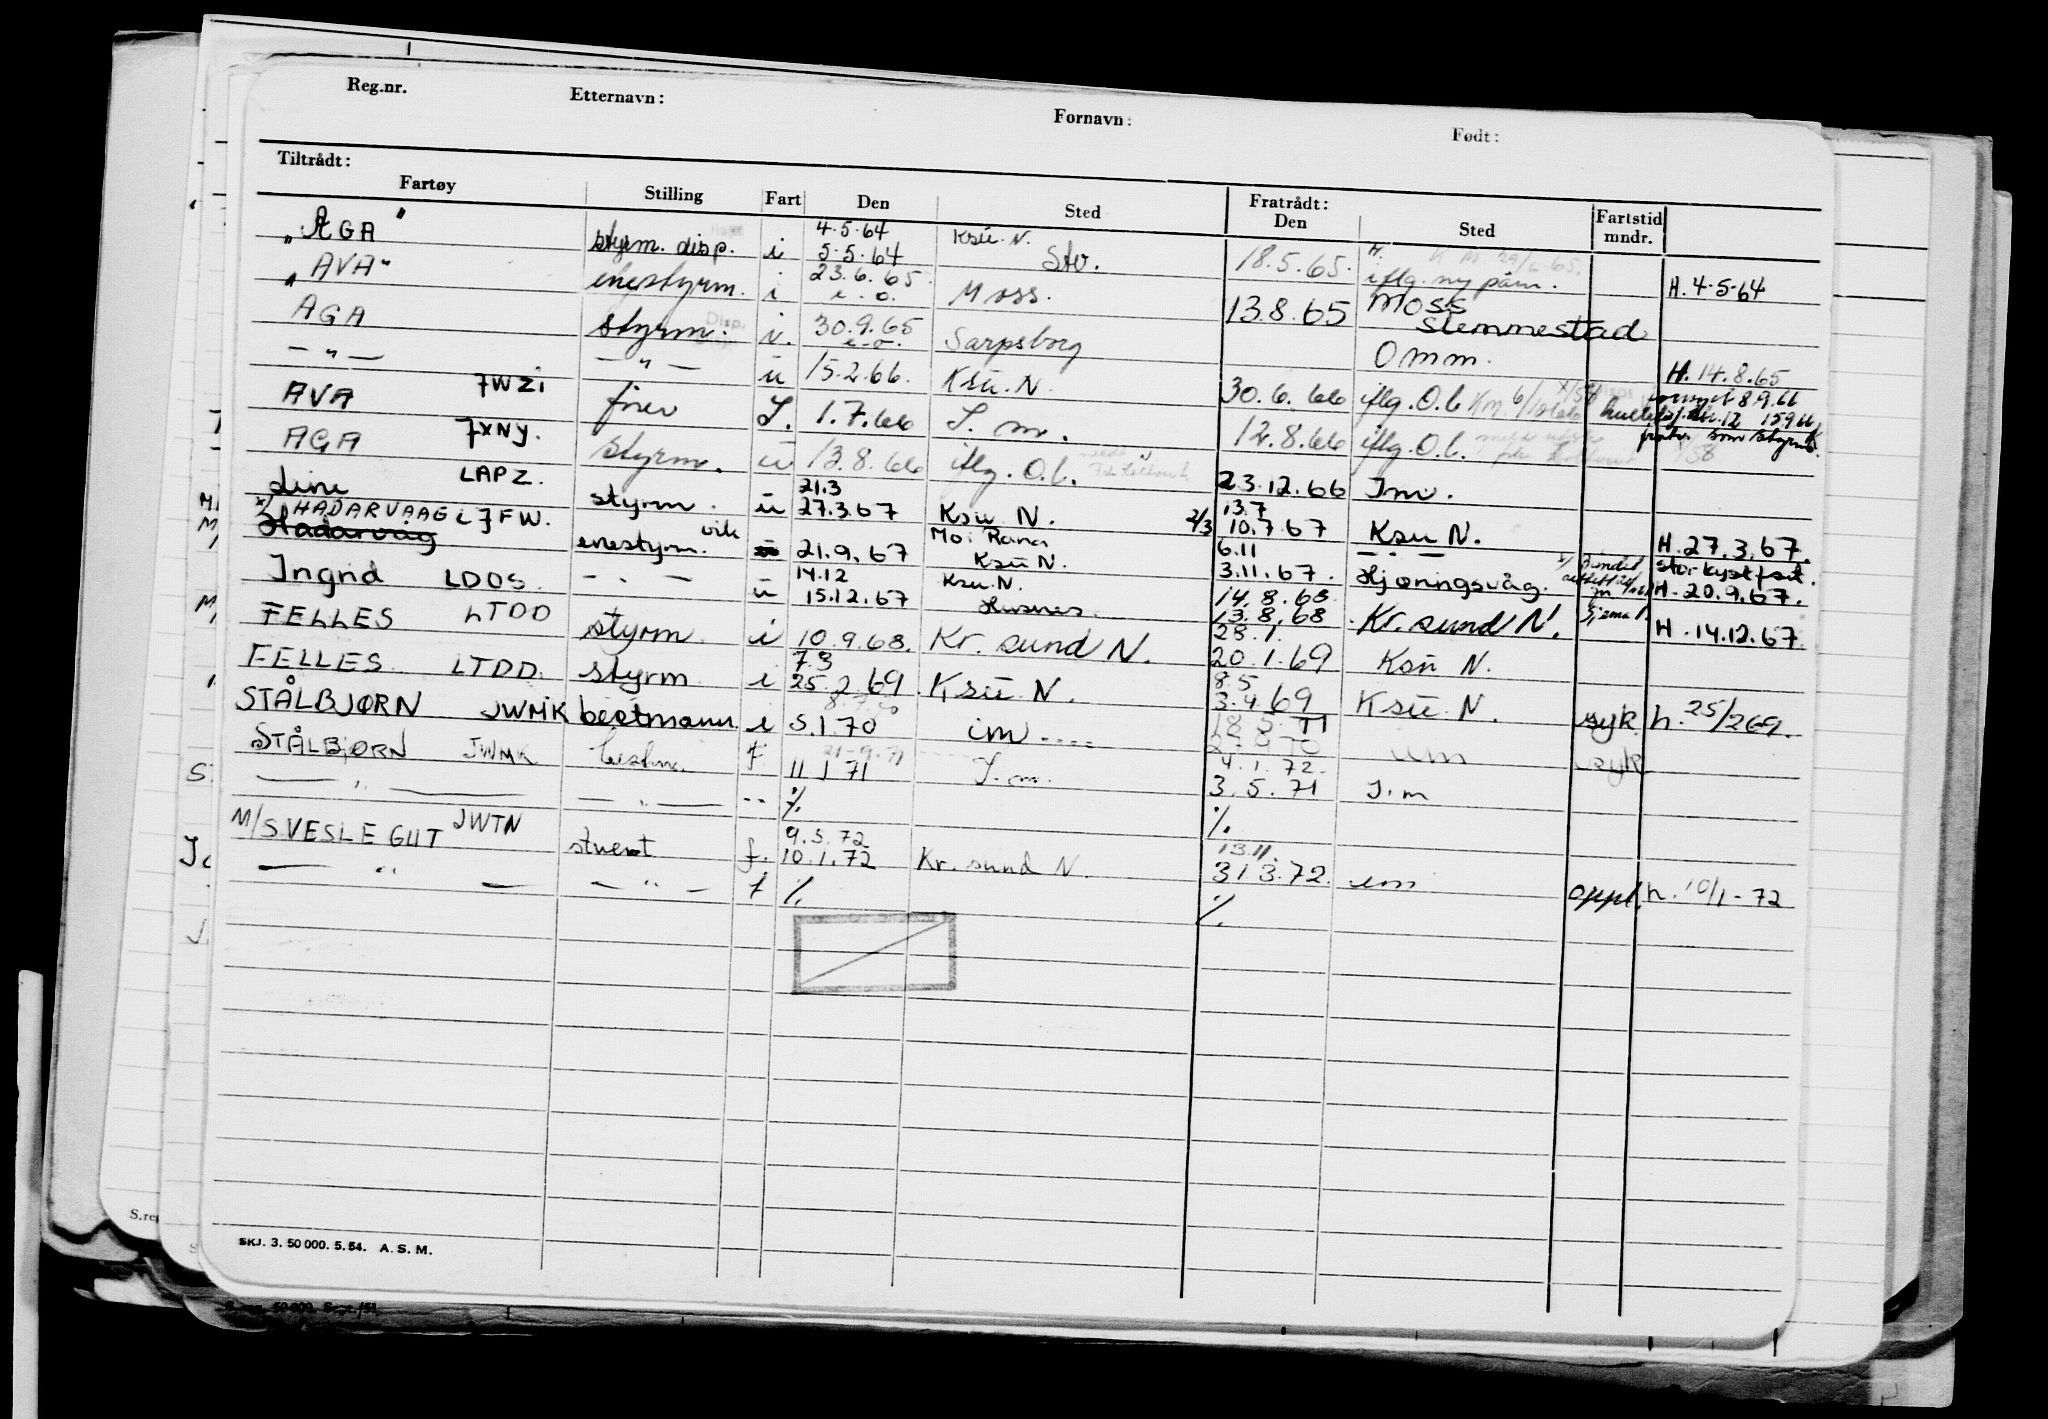 Reg.nr. Etternavn: Fornavn: Født:
Tiltrådt: Fratrådt:
Fartøy Stilling Fart Den Sted Den Sted Fartstid mndr.
4.5.64 Ksu. N.
„AGA" styrm. disp. i 5.5.64 Stv. 18.5.65. H. 4-5-64
„AVA" enestyrm. i 23.6.65 Moss. iflg. ny påm.
AGA styrm. 30.9.65 Sarpsborg 13.8.65 Moss Slemmestad
— „ — — „ — u 15.2.66. Ksu. N. Omm. H. 14.8.65
AVA JWZI fører I. 1.7.66 I. m. 30.6.66 iflg. O.b.
AGA JXNY. styrm. u 13.8.66 iflg. O.b. 12.8.66 iflg. O.b.
Line LAPZ. styrm. u 21.3 27.3.67 Ksu N. 23.12.66 Im.
x/ HADARVAAG LJFW. Mo i Rana 13.7
Hadarvåg enestyrm. vik 21.9.67 Ksu N. 2/3 10.7.67 Ksu N. H. 27.3.67.
Ingrid LDOS. — . — u 14.12 Ksu. N. 6.11 — . —
15.12.67 Husnes. 3.11.67. Hjøringsvåg. H. 20.9.67.
14.8.68
FELLES LTDD styrm. i 10.9.68. Kr. sund N. 13.8.68 Kr. sund N. H. 14.12.67.
7.3 28.1.
FELLES. LTDD. styrm i 25.2.69 Ksu N. 20.1.69 Ksu N.
8.5
STÅLBJØRN JWMK bestmann i 5.1.70 im .... 3.4.69 Ksu. N. syk h. 25/2 69.
STÅLBJØRN JWMK bestm. f 11 1 71 I. m. 4.1.72. im syk
— „ — — „ — -- %. 3.5.71 I.m
M/S VESLEGUT JWTN 9.5.72 %.
stuert f. 10.1.72 Kr. sund N. 13.11.
— „ — — „ — f %. 31 3.72. im oppl. h. 10/1-72
%.
SKJ. 3. 50 000. 5. 54. A. S. M.